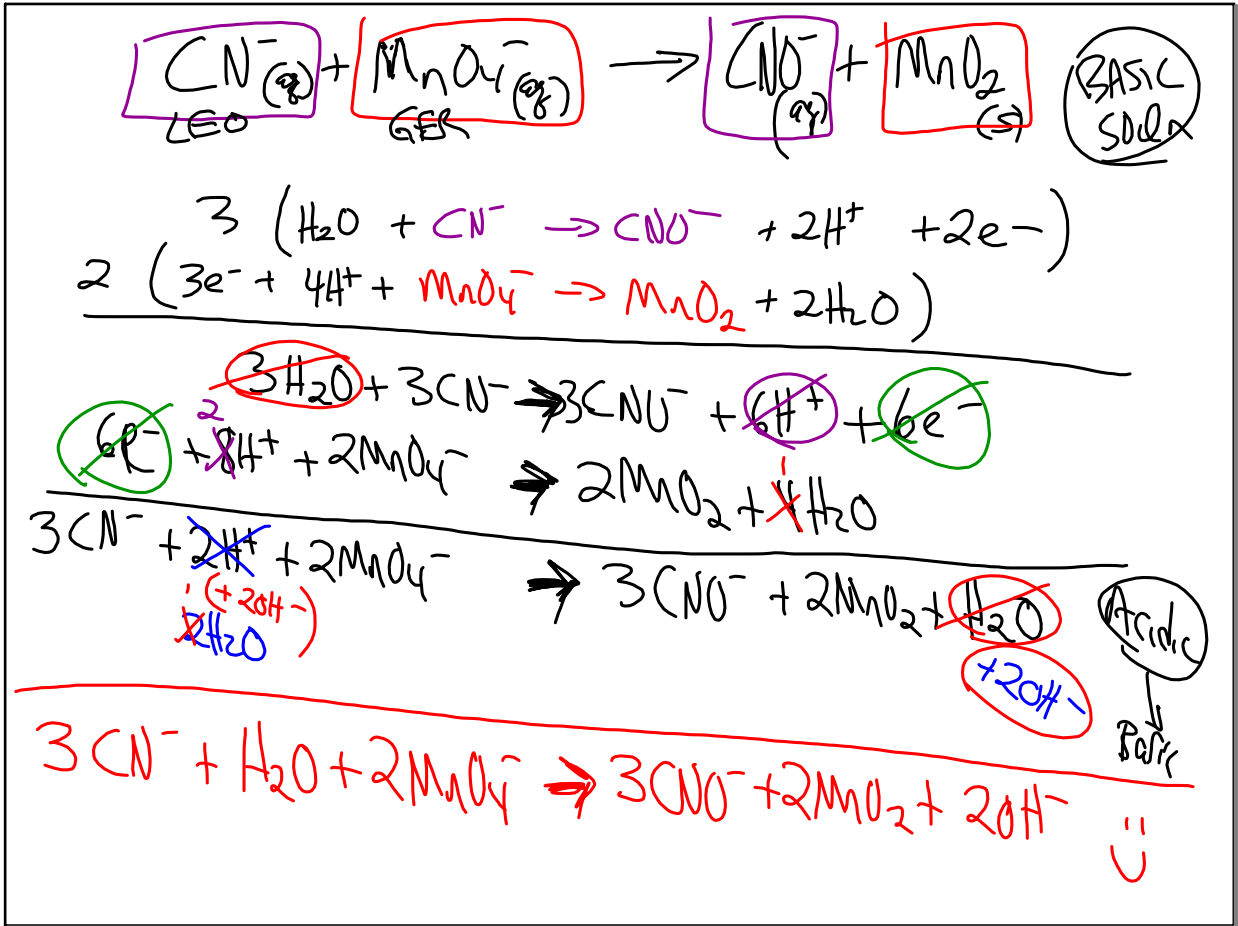 CN⁻(aq) + MnO₄⁻(aq) → CNO⁻(aq) + MnO₂(s) BASIC
LEO GER SOLN
3 (H₂O + CN⁻ → CNO⁻ + 2H⁺ + 2e⁻)
2 (3e⁻ + 4H⁺ + MnO₄⁻ → MnO₂ + 2H₂O)
3H₂O + 3CN⁻ → 3CNO⁻ + 6H⁺ + 6e⁻
2 1
6e⁻ + 8H⁺ + 2MnO₄⁻ → 2MnO₂ + 4H₂O
3CN⁻ + 2H⁺ + 2MnO₄⁻ → 3CNO⁻ + 2MnO₂ + H₂O Acidic
1 (+ 2OH⁻) +2OH⁻
2H₂O Basic
3CN⁻ + H₂O + 2MnO₄⁻ → 3CNO⁻ + 2MnO₂ + 2OH⁻